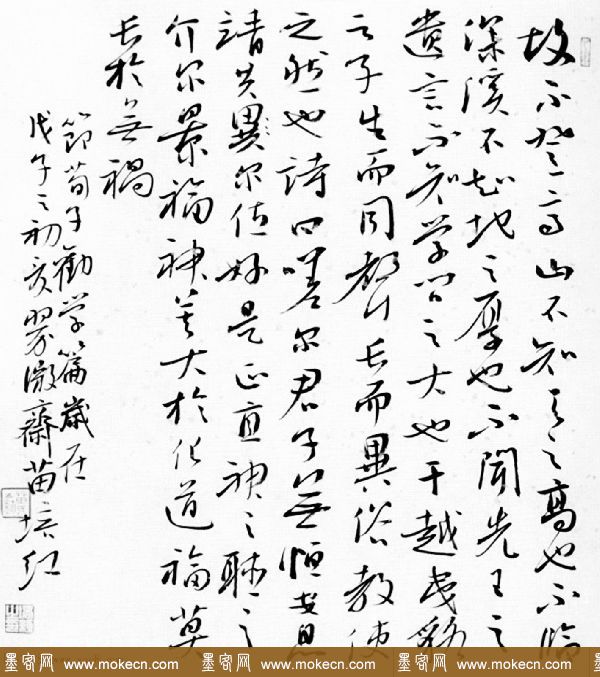 故不登高山不知天之高也不臨
深溪不知地之厚也不聞先王之
遺言不知学问之大也干越夷貉
之子生而同聲长而異俗教使
之然也詩曰嗟尔君子無恒安息
靖共異尔位好是正直神之聽之
介尔景福神莫大於化道福莫
长於無禍
節荀子勸学篇歲在
戊子之初翠微齋苗培红
墨客网 www.mokecn.com 墨客网 www.mokecn.com 墨客网 www.mokecn.com